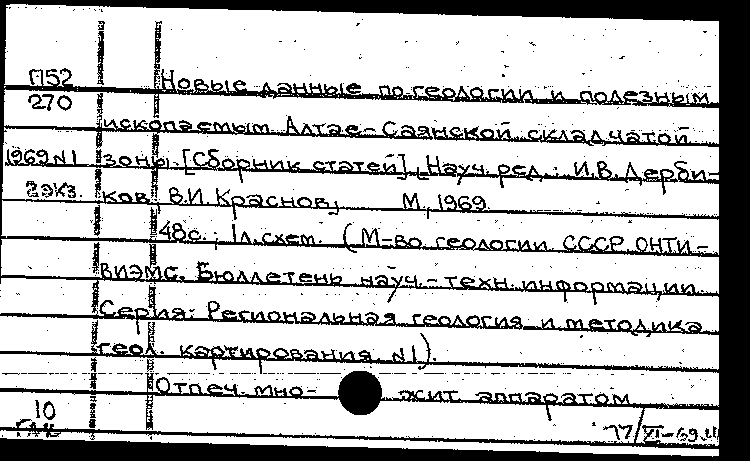 П52
270
1969 N1
2экз.
Новые данные по геологии и полезным
ископаемым Алтае-Саянской складчатой
зоны. [Сборник статей]. [Науч. ред.: И.В. Дерби-
ков, В.И. Краснов]. М., 1969.
48с.; 1л.схем. (М-во геологии СССР. ОНТИ-
ВИЭМС. Бюллетень науч.-техн. информации.
Серия: Региональная геология и методика
геол. картирования, N1).
Отпеч. мно- жит аппаратом
10
77/XI-69